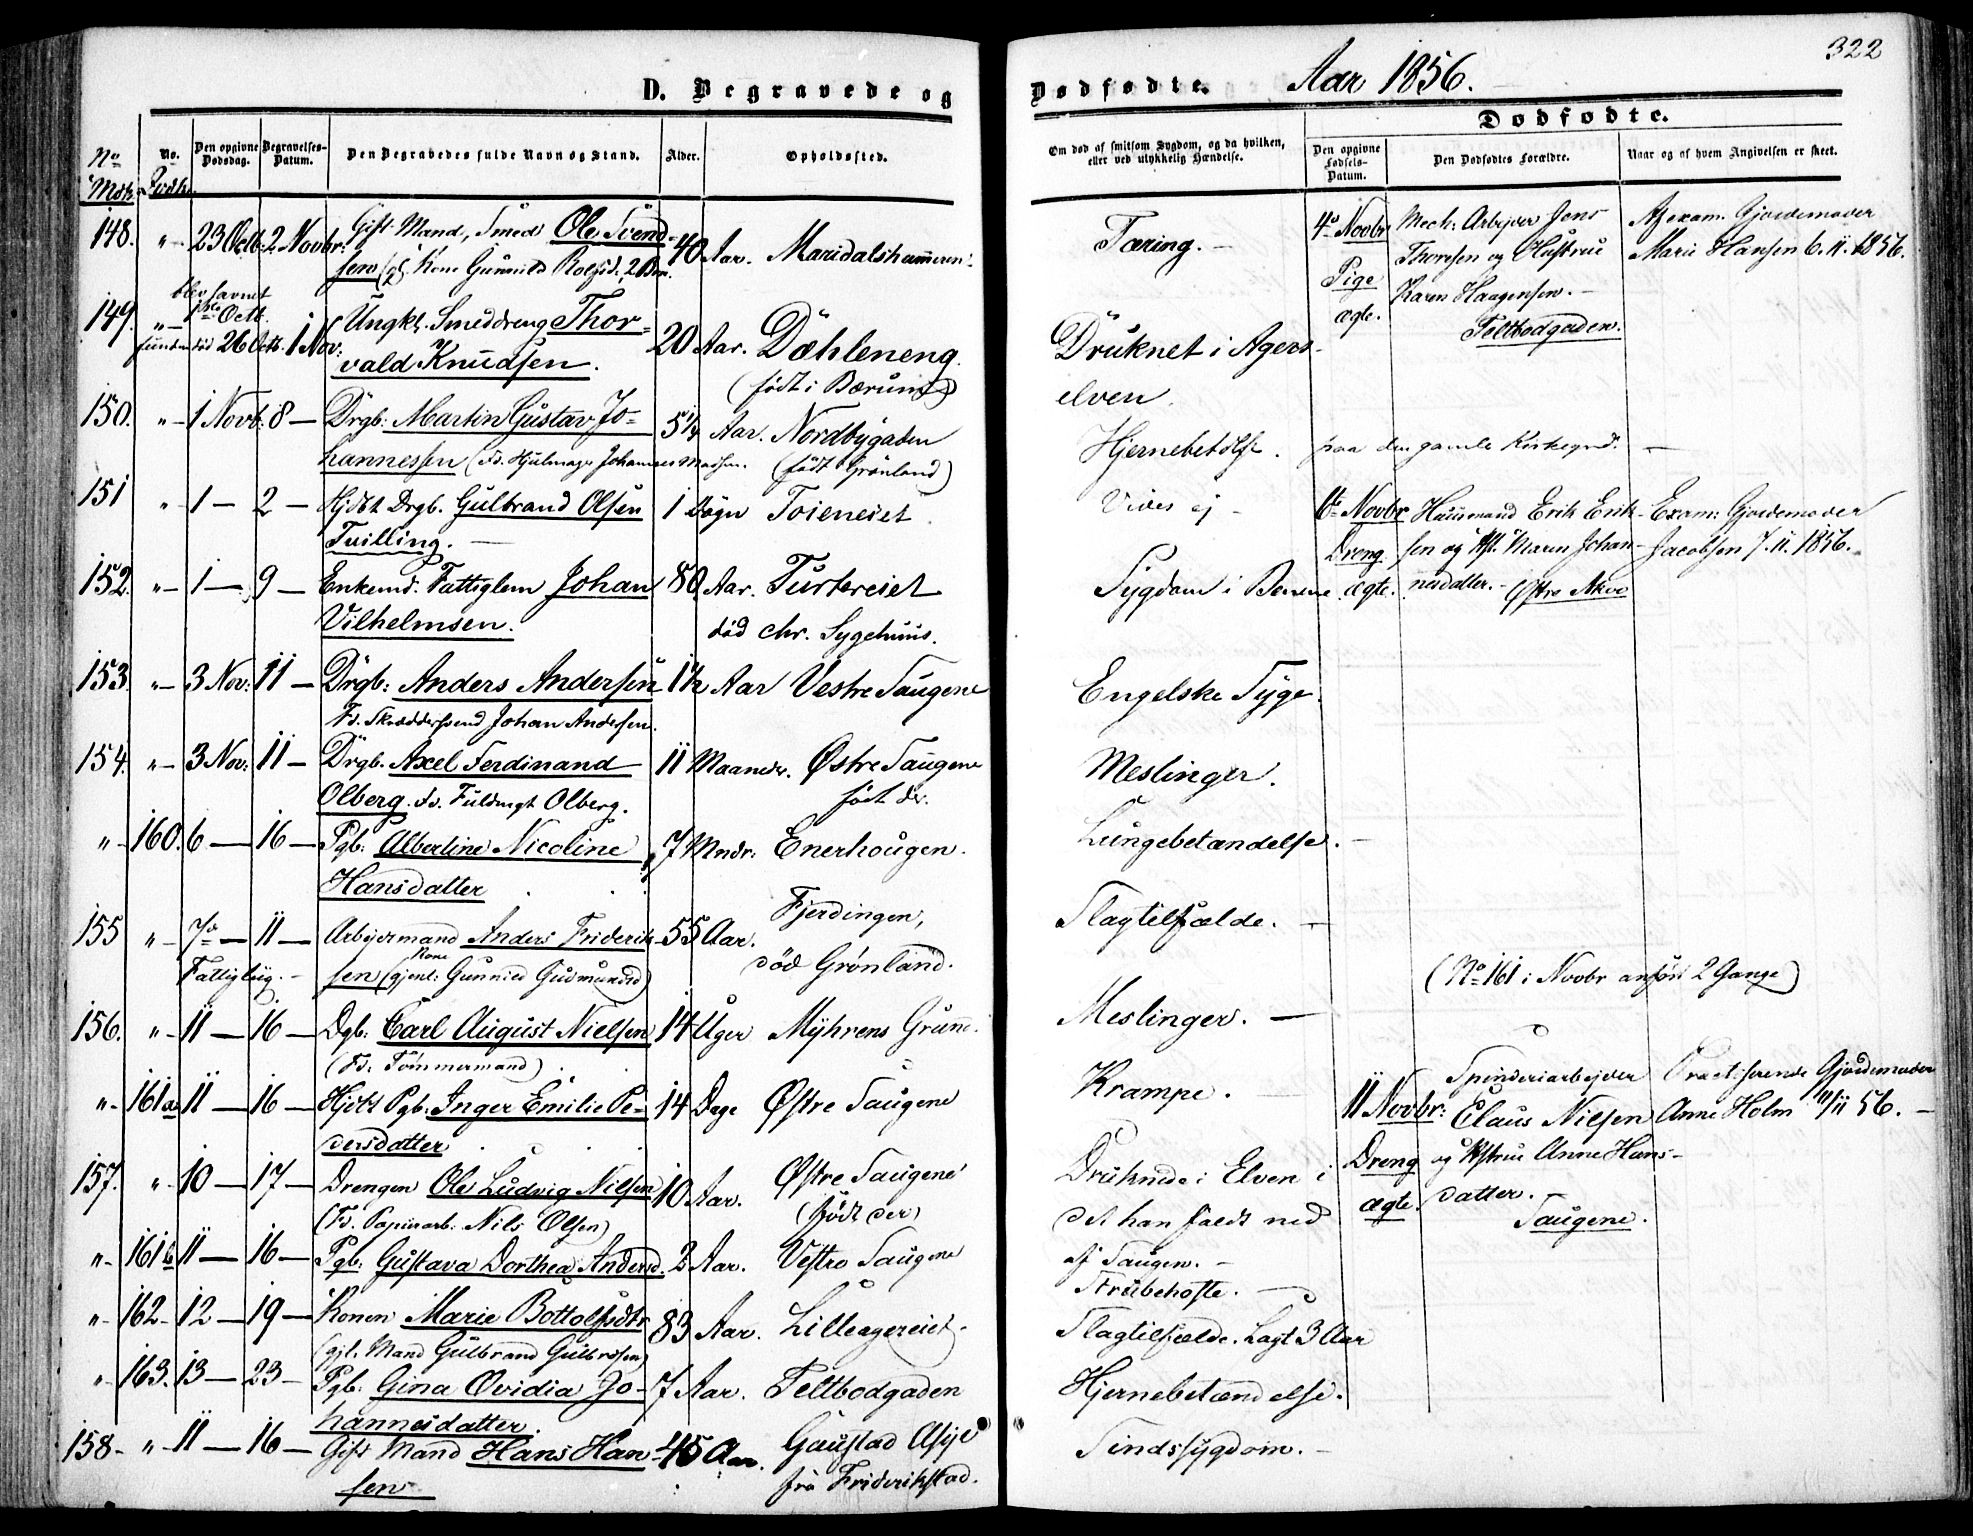 322
D. Begravede og Dødfødte. Aar 1856.
No. Mdk.
No. Qvdk.
Den opgivne Dødsdag.
Begravelses-Datum.
Den Begravedes fulde Navn og Stand.
Alder.
Opholdssted.
Om død af smitsom Sygdom, og da hvilken, eller ved ulykkelig Hændelse.
Dødfødte.
Den opgivne Fødsels-Datum.
Den Dødfødtes Forældre.
Naar og af hvem Angivelsen er skeet.
148. " 23 Octb. 2 Novbr. Gift Mand, Smed Ole Svend- 40 Aar. Maridalshammeren. Tæring. —
sen (gl. Kone Gunnild Rolfsd. 2 Brn.
149. " blev savnet 1ste Octb.
funden død 26 Octb. 1 Nov: Ungkl. Smeddreng Thor- 20 Aar. Dæhleneng. Druknet i Agers-
vald Knudsen. (født i Bærum) elven.
150. " 1 Novb. 8 — Drgb: Martin Gustav Jo- 5 1/4 Aar. Nordbygaden Hjernebetölse. paa den gamle Kirkegrd. —
hannessen (Fd. Hjulmager Johannes Madsen. (født Grønland)
151 " 1 — 2 — Hjdbt Drgb. Gulbrand Olsen 1 Døgn Toieneiet. Vides ej —
Tvilling. —
152. " 1 — 9 — Enkemd. Fattiglem Johan 80 Aar. Turtereiet Sygdom i Benene
Vilhelmsen. död chr. Sygehuus.
153. " 3 Nov: 11 — Drgb: Anders Andersen 1 1/2 Aar Vestre Saugene Engelske Syge.
Fd. Skræddersvend Johan Andersen.
154. " 3 Nov: 11 — Drgb. Axel Ferdinand 11 Maaneder. Østre Saugene Meslinger.
Olberg. Fd. Fuldmgt Olberg. født der.
" 160. 6 — 16 — Pgb: Albertine Nicoline 7 Mndr: Enerhougen. Lungebetændelse. —
Hansdatter
155 " 7de — 11 — Arbejdermand Anders Friderik- 55 Aar. Fjerdingen, Slagtilfælde. —
Fattiglig. — sen (gjenl: Kone Gunnild Gudmundsd) död Grønland.
156. " 11 — 16 — Dgb: Carl August Nielsen 14 Uger Myhrens Grund. Meslinger. —
(Fd: Tømmermand)
" 161a 11 — 16 — Hjdbt Pgb: Inger Emilie Pe- 14 Dage Østre Saugene Krampe. —
dersdatter
157. " 10 — 17 — Drengen Ole Ludvig Nilsen 10 Aar. Østre Saugene Druknede i Elven i
(Fd. Papirarb: Nils Olsen) (født der) det han faldt ned
af Saugen. —
" 161b 11 — 16 — Pgb: Gustava Dorthea Andersd. 3 Aar. Vestre Saugene Strubehoste. —
" 162 12 — 19 — Konen Marie Bottolfsdtr 83 Aar. Lilleagereiet. Slagtilfælde. Lagt 3 Aar
(gjl. Mand Gulbrand Gulbrsen)
" 163. 13 — 23 — Pgb: Gina Ovidia Jo- 7 Aar. Teltbodgaden Hjernebetændelse.
hannesdatter.
158 " 11 — 16 — Gift Mand Hans Han- 45 Aar. Gaustad Asyl Sindssygdom. —
sen fra Friderikstad.
4de Novbr Pige ægte. Mech: Arbejder Jens Af exam. Gjordemoder
Thoresen og Hustrue Marie Hansen 6.11.1856.
Karen Haagensen. —
Teltbodgaden.
6te Novbr Dreng ægte. Huusmand Erik Erik- Exam: Gjordemoder
sen og Hst. Maren Johan- Jacobsen 7.11.1856.
nesdatter. — Østre Akre
(No 161 i Novbr anført 2 Gange)
11 Novbr: Dreng ægte. Spinderiarbejder Practiserende Gjordemoder
Claus Nilsen Anne Holm 11/11 56. —
og Hstrue Anne Hans-
datter.
Saugene.